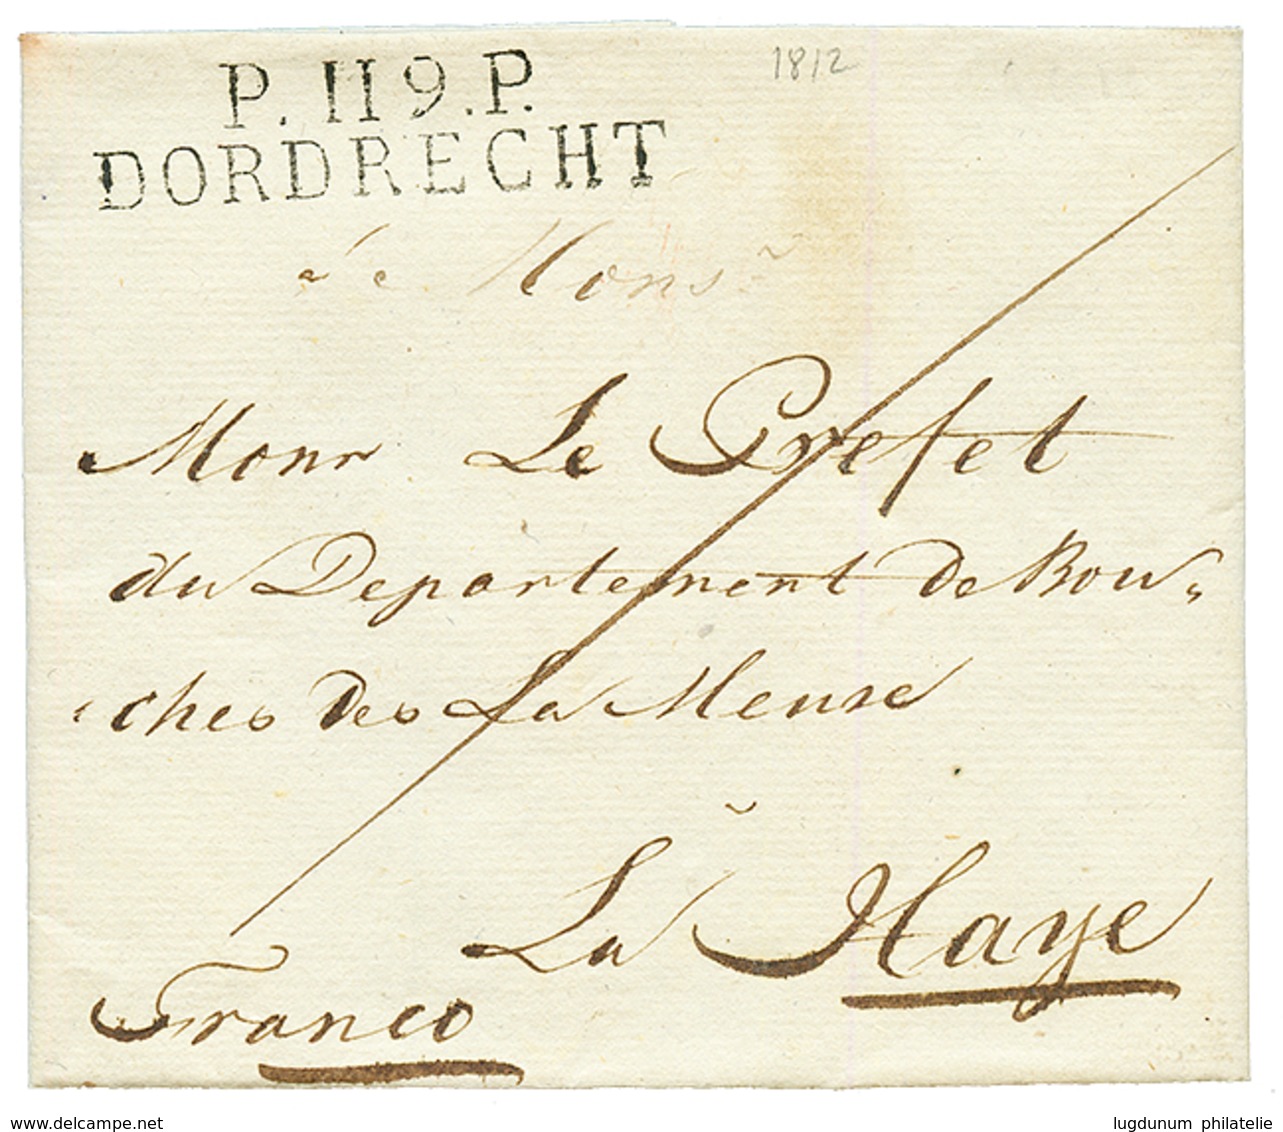 P. 119.P.
DORDRECHT
1812
Mons
Monr Le Prefet
du Departement de Bou„
„ches des La Meuse
La Haye
Franco
www.delcampe.net
lugdunum philatelie